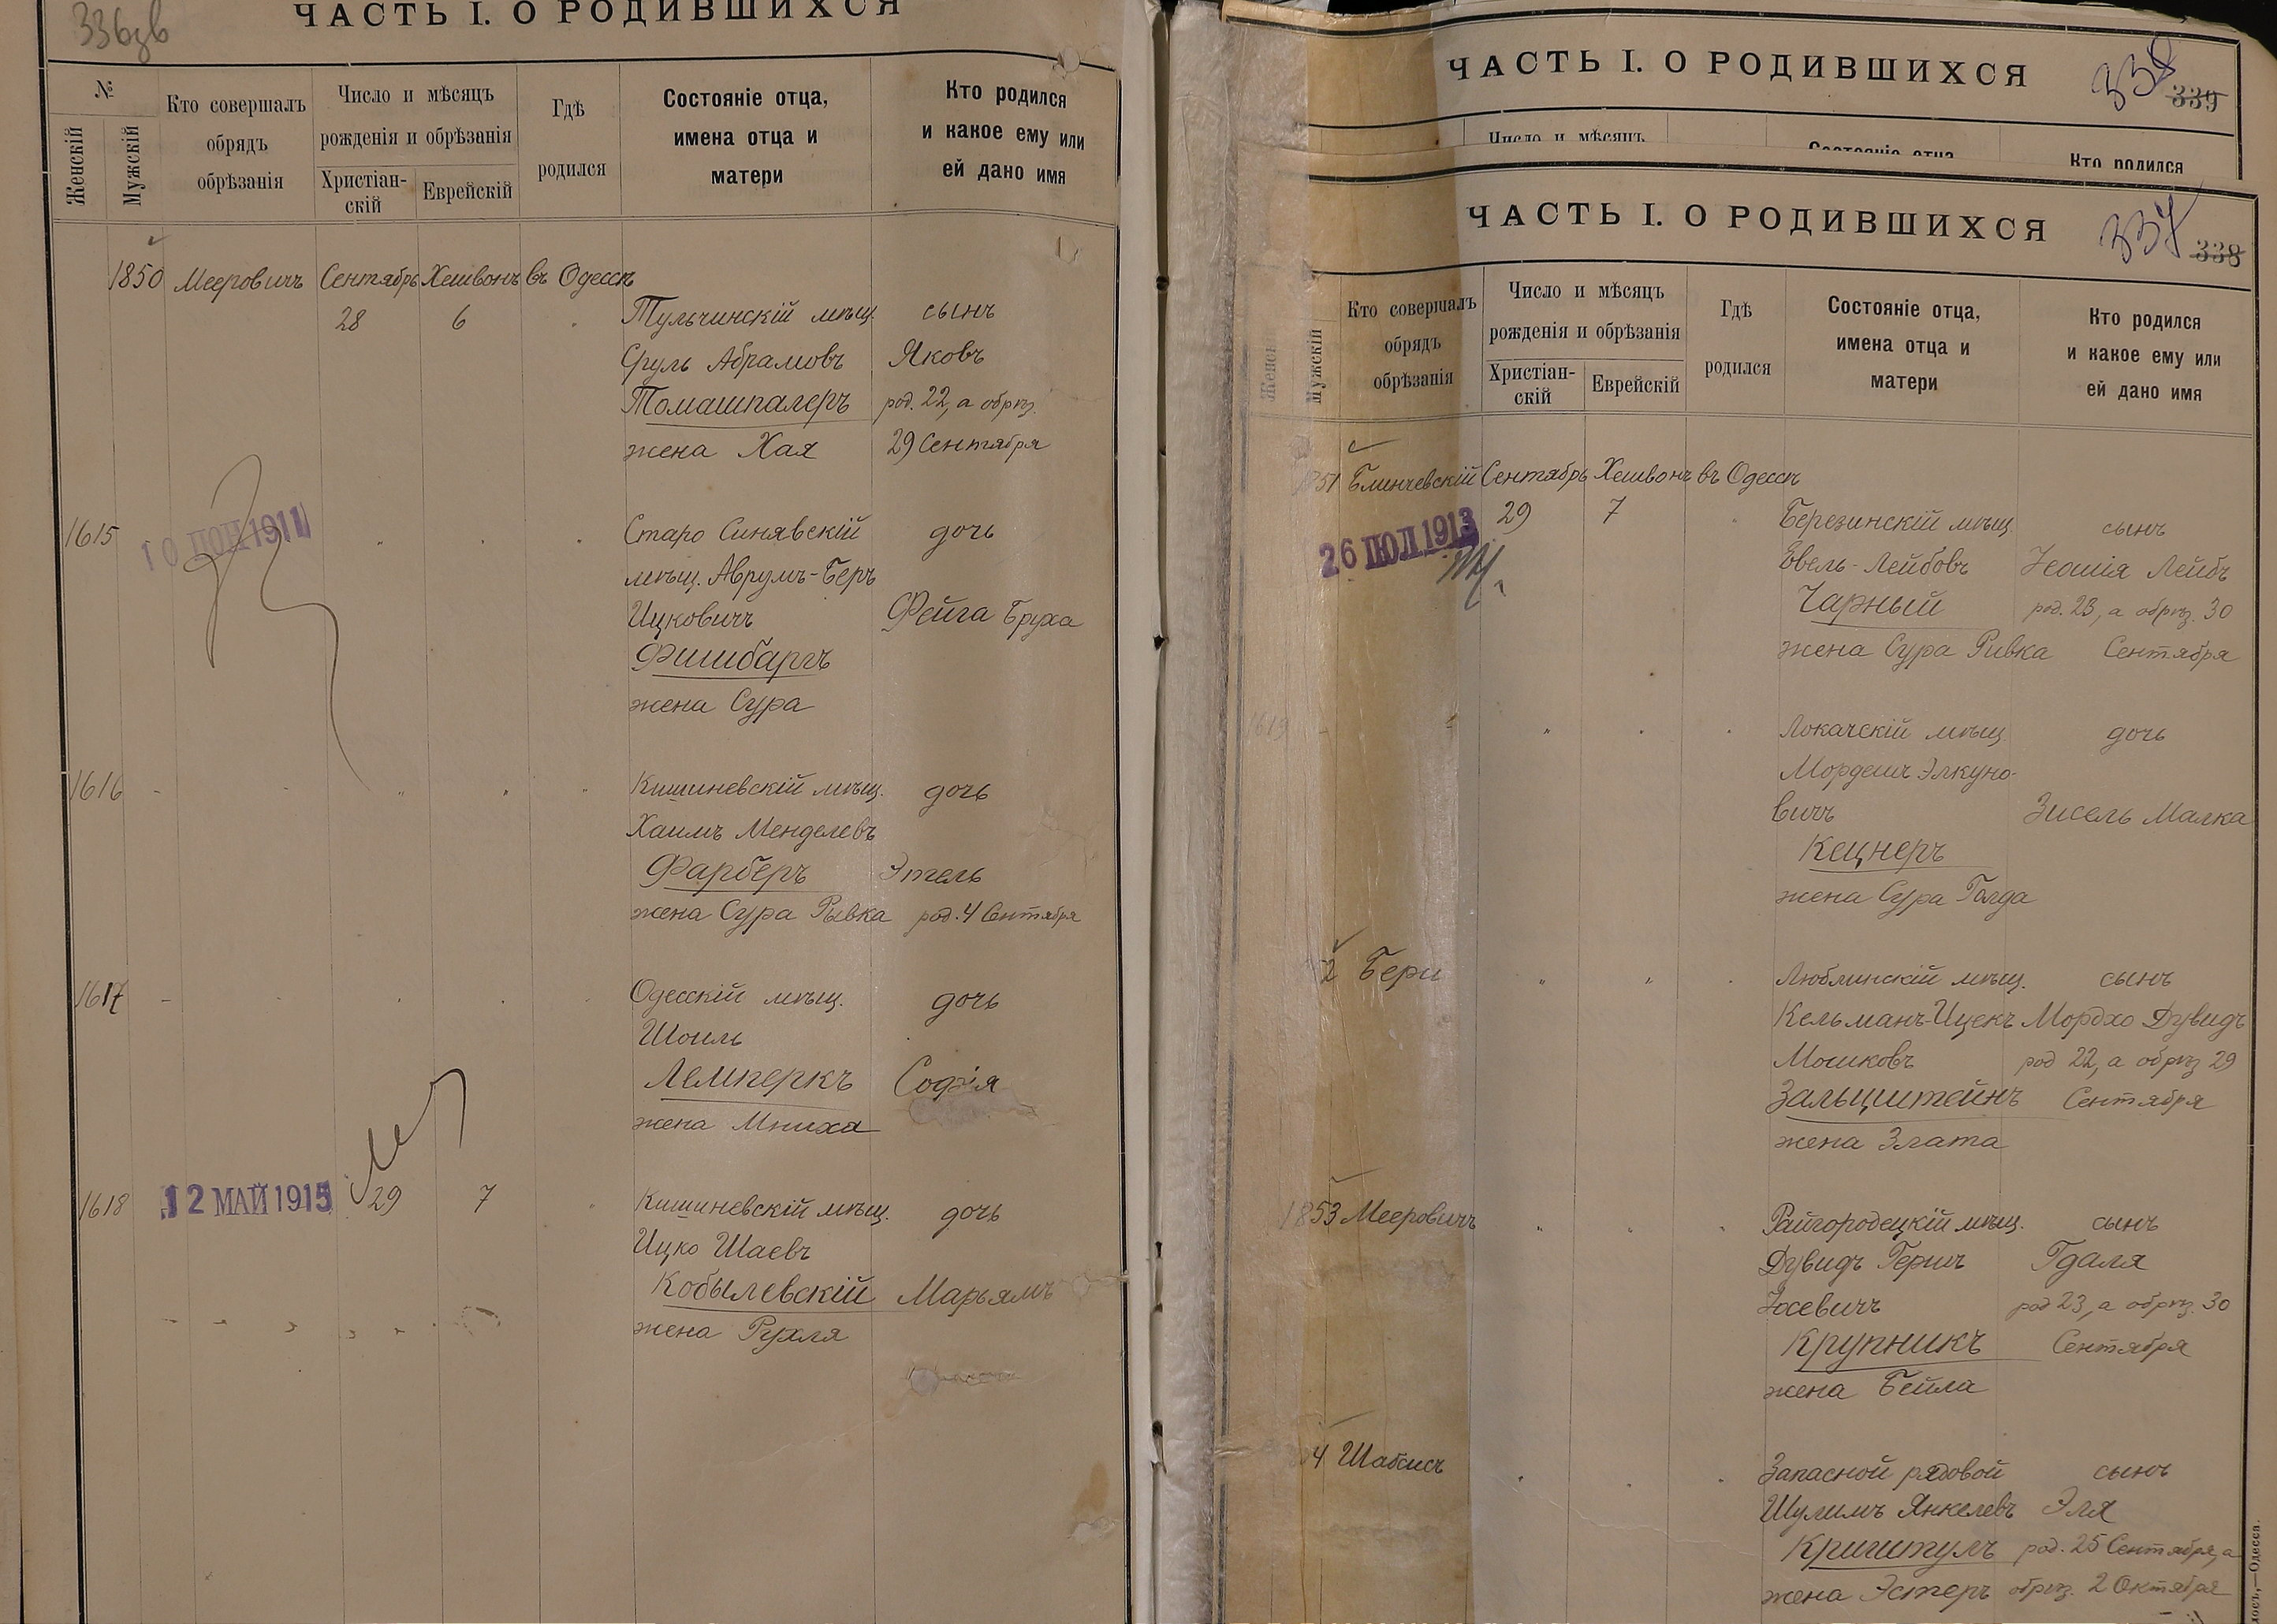 336зв
ЧАСТЬ I. О РОДИВШИХСЯ
№
Женскій
Мужскій
Кто совершалъ
обрядъ
обрѣзанія
Число и мѣсяцъ
рожденія и обрѣзанія
Христіан-
скій
Еврейскій
Гдѣ
родился
Состояніе отца,
имена отца и
матери
Кто родился
и какое ему или
ей дано имя
1850 Мееровичъ Сентябрь Хешвонъ въ Одессѣ
28 6 Тульчинскій мѣщ. сынъ
Сруль Абрамовъ Яковъ
Томашпалеръ род. 22, а обрѣз.
жена Хая 29 Сентября
1615 10 1911 Старо Синявскій дочь
мѣщ. Аврумъ-Беръ
Ицковичъ Фейга Бруха
Фишбаргъ
жена Сура
1616 Кишиневскій мѣщ. дочь
Хаимъ Менделевъ
Фарберъ Этель
жена Сура Рывка род. 4 Сентября
1617 Одесскій мѣщ. дочь
Шоиль
Лемперкъ Софія
жена Мниха
1618 12 МАЙ 1915 29 7 Кишиневскій мѣщ. дочь
Ицко Шаевъ
Кобылевскій Марьямъ
жена Рухля
ЧАСТЬ I. О РОДИВШИХСЯ
338
339
Число и мѣсяцъ
Состояніе отца
Кто родился
ЧАСТЬ I. О РОДИВШИХСЯ
337
338
Женск
Мужскій
Кто совершалъ
обрядъ
обрѣзанія
Число и мѣсяцъ
рожденія и обрѣзанія
Христіан-
скій
Еврейскій
Гдѣ
родился
Состояніе отца,
имена отца и
матери
Кто родился
и какое ему или
ей дано имя
1851 Блинчевскій Сентябрь Хешвонъ въ Одессѣ
26 ІЮЛ 1913 29 7 Березинскій мѣщ. сынъ
Евель-Лейбовъ Іеошія Лейбъ
Чарный род. 23, а обрѣз. 30
жена Сура Ривка Сентября
1619 Локачскій мѣщ. дочь
Мордешъ Элкуно-
вичъ Зисель Малка
Кецнеръ
жена Сура Голда
2 Бери Люблинскій мѣщ. сынъ
Кельманъ-Ицекъ Мордхо Дувидъ
Мошковъ род 22, а обрѣз 29
Зальцштейнъ Сентября
жена Злата
1853 Мееровичъ Райгородецкій мѣщ. сынъ
Дувидъ Гершъ Гдаля
Іосевичъ род 23, а обрѣз. 30
Крупникъ Сентября
жена Бейла
4 Шабсисъ Запасной рядовой сынъ
Шулимъ Янкелевъ Эля
Криштулъ род. 25 Сентября, а
жена Эстеръ обрѣз. 2 Октября
—Одесса.